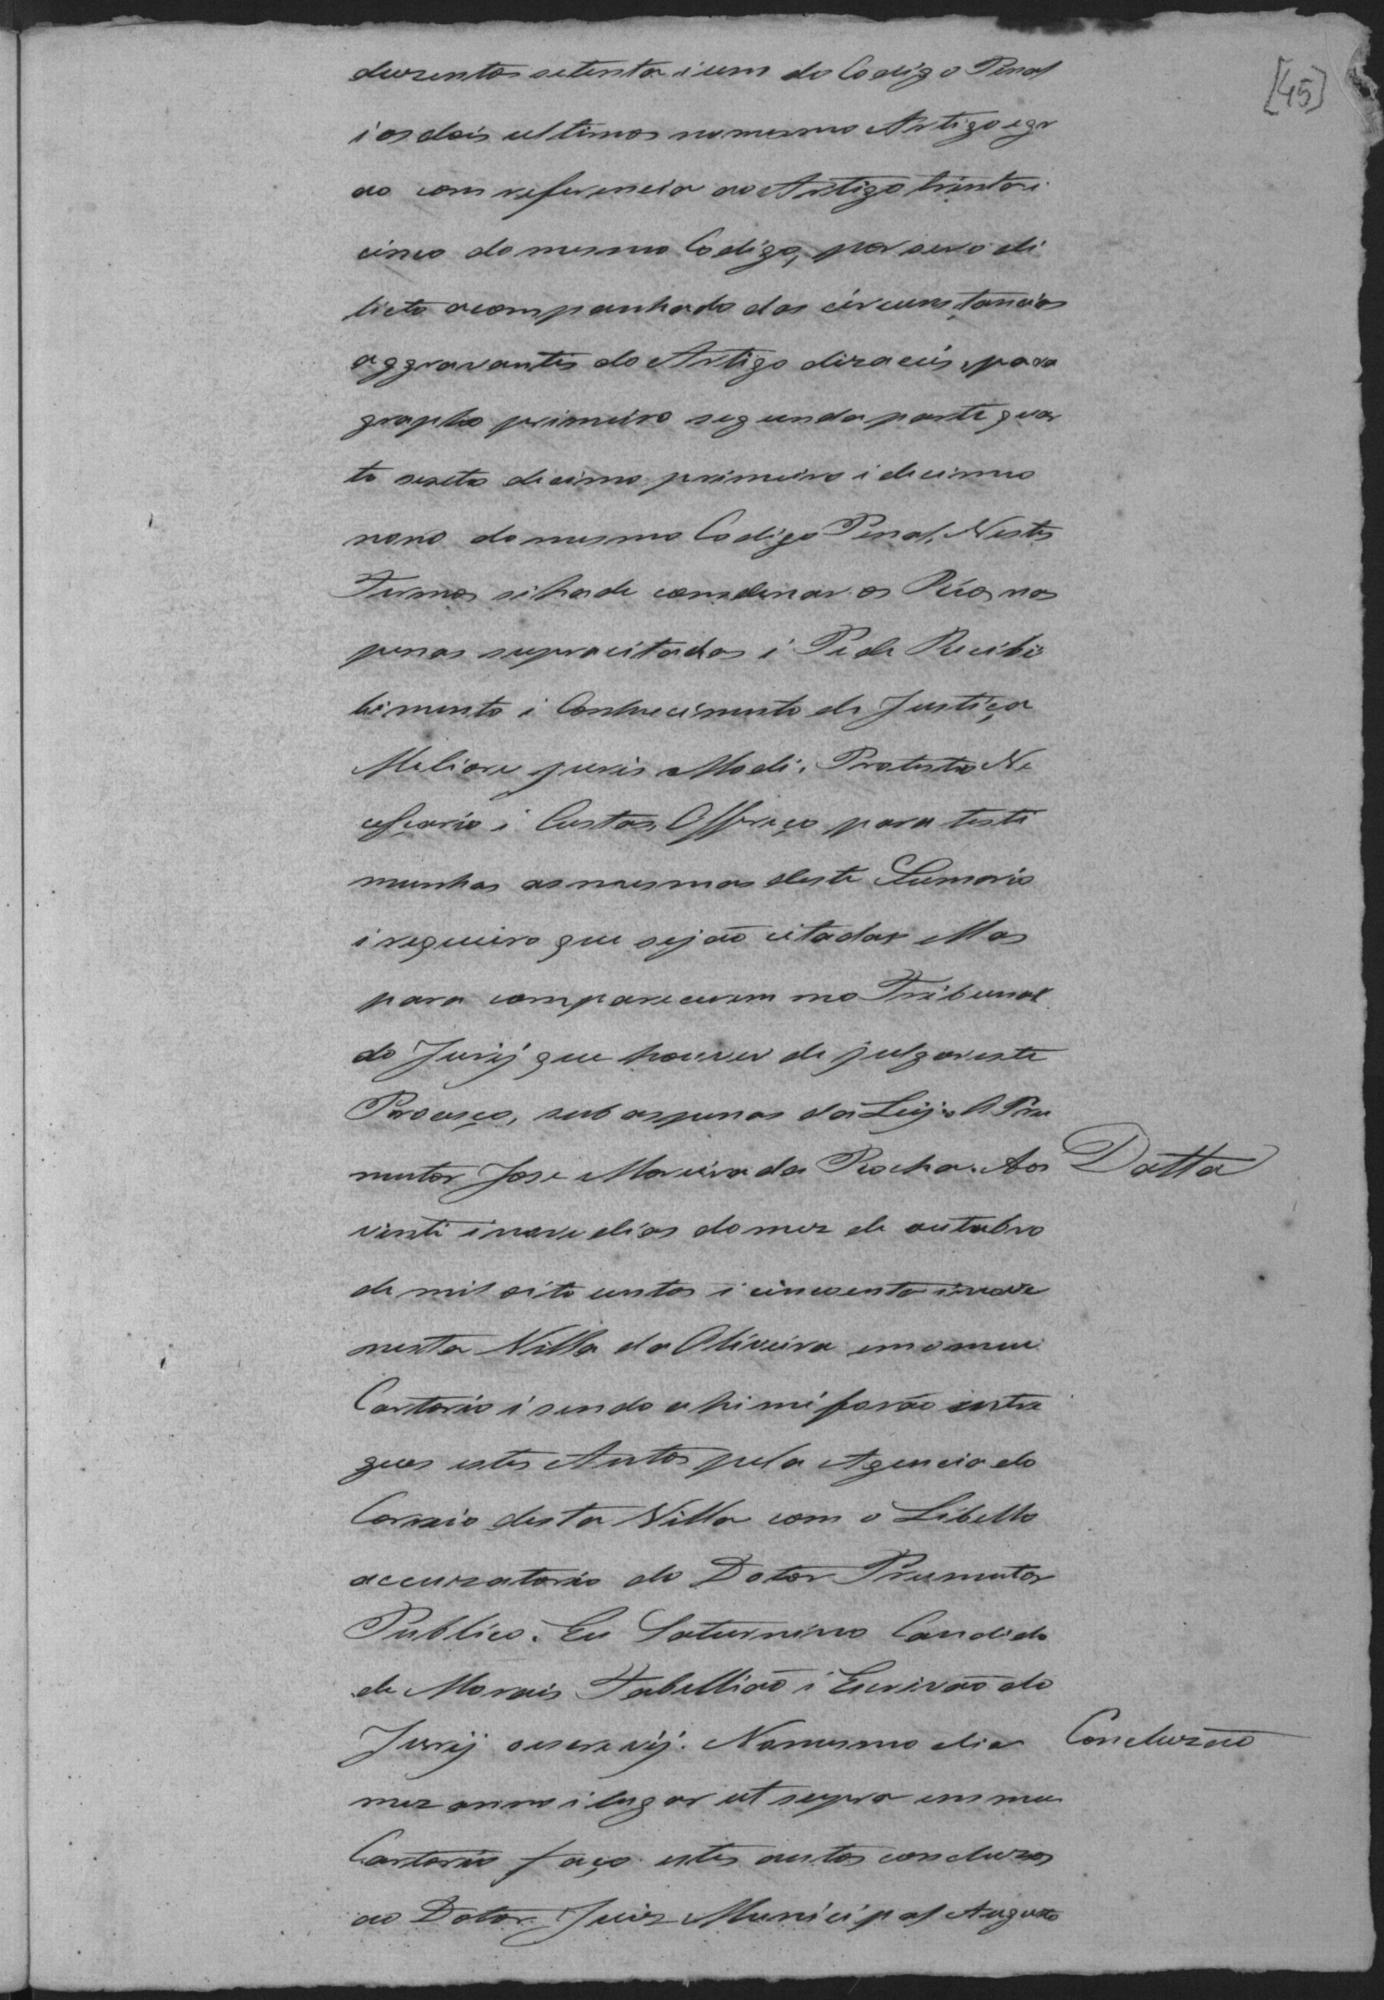 [45]
duzentos setenta i um do Codigo Penal
i os dois ultimos no mesmo Artigo e gr
ao com referencia ao Artigo trinta i
cinco do mesmo Codigo, por ser o di
licto acompanhado das circunstancias
aggravantes do Artigo dizaceis, para
grapho primeiro segunda parte, quar
to sexto decimo primeiro i decimo
nono do mesmo Codigo Penal. Nestes
Termos si ha de comdenar os Réos nas
penas supracitadas i Pede Recibi
bimento i Conhecimento de Justiça
Meliore juris Modi. Protesta Ne
cessario i Custas, Offereço para testi
munhas as mesmas deste Sumario
i requeiro que sejão citadas Mas
para comparecerem no Tribunal
do Jurij que houver de julgar este
Proceço, sub as penas da Leij. O Pru
mutor Jose Moreira da Rocha. Aos
Datta
vinti i nove dias do mez de outubro
de mil oito centos i cincoenta i nove
nesta Villa da Oliveira em o meu
Cartorio i sendo ahi mi forão entre
gues estes Autos pela Agencia do
Correio desta Villa com o Libello
accuzatorio do Dotor Prumutor
Publico. Eu Saturnino Candido
de Morais Tabellião i Escrivão do
Jurij o escrevij. No mesmo dia
Concluzão
mez anno i lugar ut supra em meu
Cartorio faço estes autos concluzos
ao Dotor Juiz Municipal Augusto